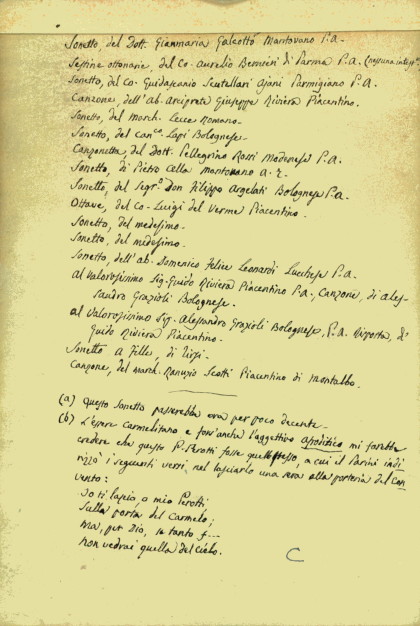 Sonetto, del dott. Gianmaria Galeotti Mantovano P.A.
Sestine ottonarie, del Co. Aurelio Bernieri di Parma P.A. (nessuna
Sonetto, del Co. Guidascanio Scutellari Ajani Parmigiano P.A.
Canzone, dell'ab. Arciprete Giuseppe Riviera Piacentino.
Sonetto, del march. Lecce Romano.
Sonetto, del can.co Lapi Bolognese.
Canzonetta, del dott. Pellegrino Rossi Modenese P.A.
Sonetto, di Pietro Cella mantovano
Sonetto, del Segr.o Don Filippo Argelati Bolognese P.A.
Ottave, del Co. Luigi del Verme Piacentino.
Sonetto, del medesimo.
Sonetto, del medesimo.
Sonetto, dell'ab. Domenico Felice Leonardi Lucchese P.A.
Al Valorosissimo Sig. Guido Riviera Piacentino P.A., Canzone, di Ales-
sandro Grazioli Bolognese.
Al Valorosissimo Sig. Alessandro Grazioli Bolognese, P.A. Risposta, di
Guido Riviera Piacentino.
Sonetto a Fille, di Tirsi.
Canzone, del march. Ranuzio Scotti Piacentino di Montalbo.
(a) Questo Sonetto passerebbe ora per poco decente.
(b) L'essere Carmelitano e fors'anche l'aggettivo apolitico mi farebbe
credere che questo P. Perotti fosse quello stesso, a cui il Parini indi
rizzò i seguenti versi, nel lasciarlo una sera alla porteria del Con
vento:
Io ti lascio, o mio Perotti
Sulla porta del Carmelo;
Ma, per Dio, se tanto f....
Non vedrai quella del cielo.
C